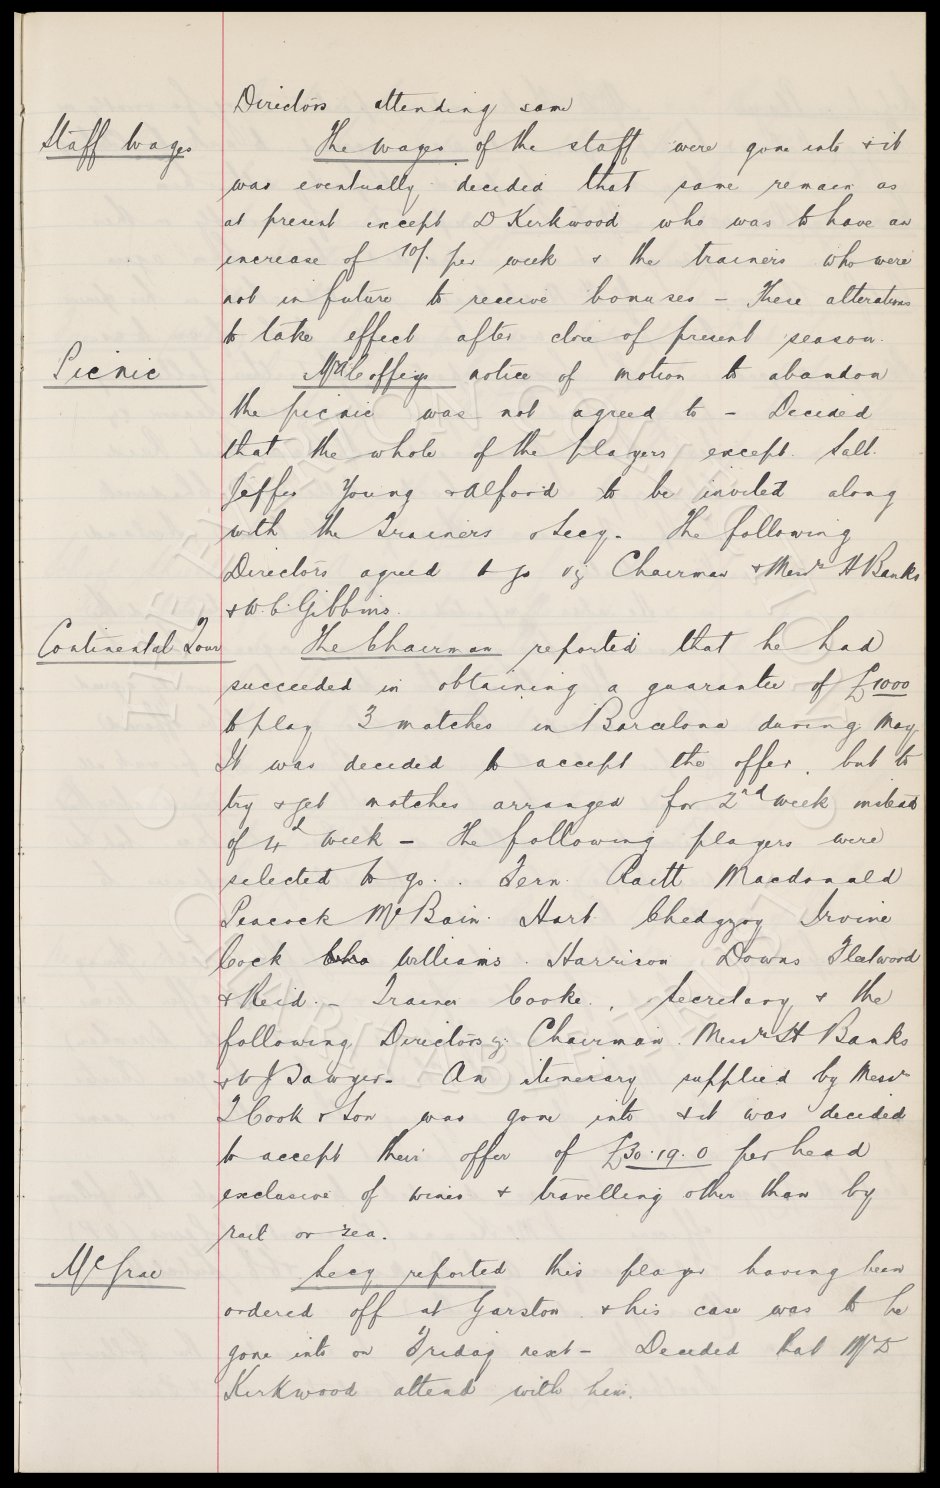 Directors attending same
Staff Wages
The wages of the staff were gone into & it
was eventually decided that same remain as
at present except D Kirkwood who was to have an
increase of 10/. per week & the trainers who were
not in future to receive bonuses – These alterations
to take effect after close of present season.
Picnic
Mr Coffeys notice of motion to abandon
the picnic was not agreed to – Decided
that the whole of the players except Salt.
Jeffs Young & Alford to be invited along
with the Trainers & Secy. The following
Directors agreed to go viz Chairman & Messrs H Banks
& W C Gibbins.
Continental Tour
The Chairman reported that he had
succeeded in obtaining a guarantee of £1000
to play 3 matches in Barcelona during May
It was decided to accept the offer, but to
try & get matches arranged for 2nd week instead
of 4th week – The following players were
selected to go. Fern. Raitt Macdonald
Peacock McBain. Hart Chedgzoy Irvine
Cock Williams. Harrison Downs Fleetwood
& Reid. – Trainer Cooke., Secretary & the
following Directors viz. Chairman. Messrs H Banks
& W J Sawyer. An itinerary supplied by Messrs
T Cook & Son was gone into & it was decided
to accept their offer of £30.19.0 per head
exclusive of wines & travelling other than by
rail or sea.
McGrae
Secy reported this player having been
ordered off at Garston & his case was to be
gone into on Friday next – Decided that Mr D
Kirkwood attend with him.